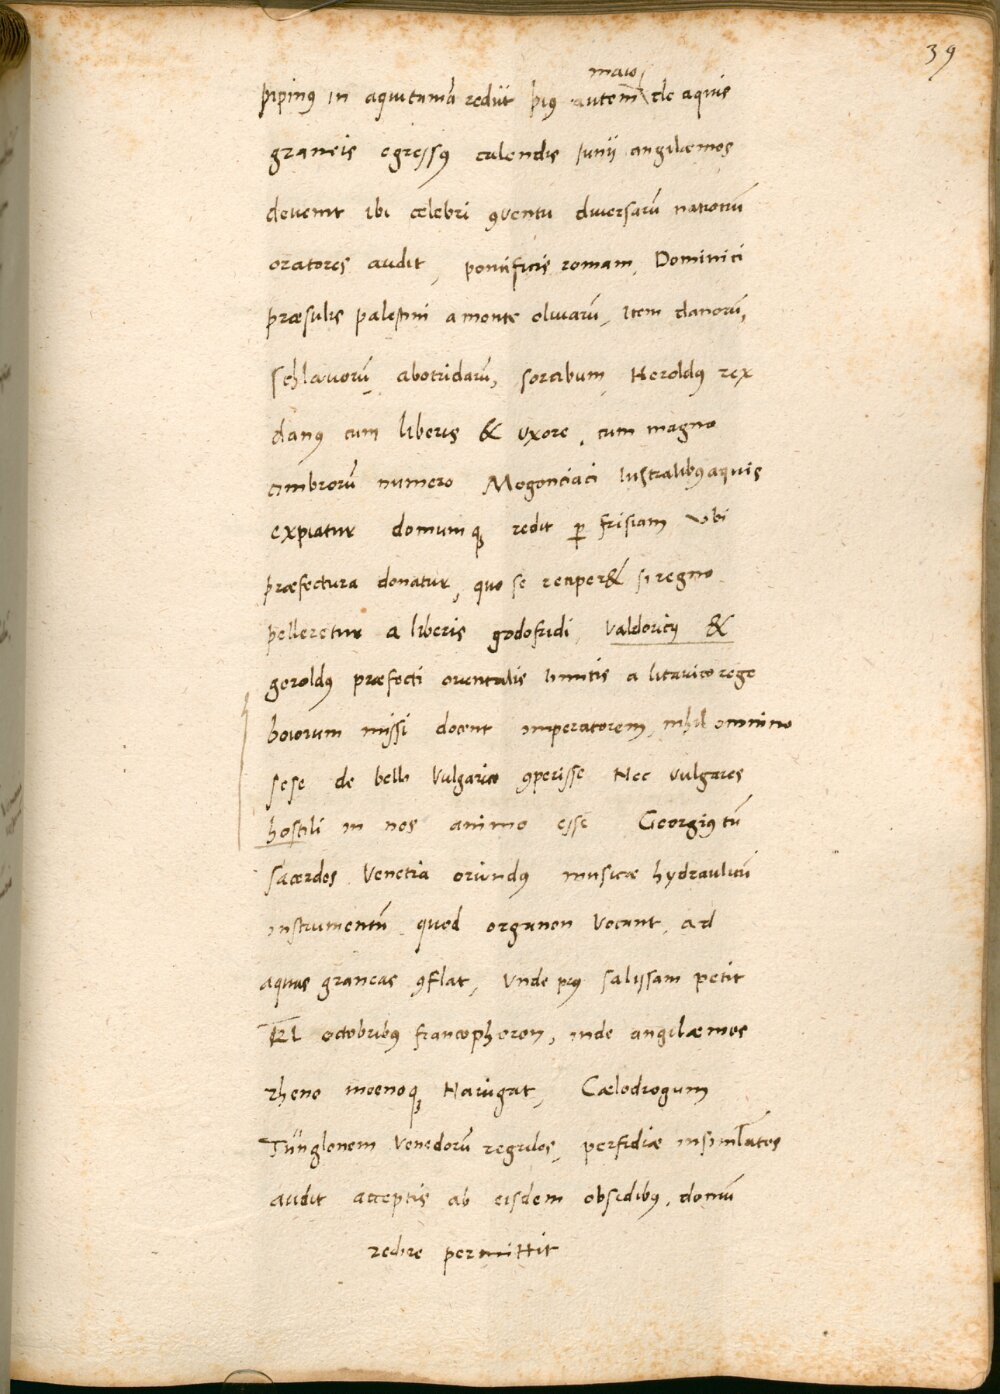 39
maio
pipinꝰ in aquitaniā rediit piꝰ autem de aquis
graneis egressꝰ calendis Junij angilæmos
devenit ibi celebri ꝯventu diversarū nationū
oratores audit, pontificis romam, Dominici
præsulis palestini a monte olivarū, Item danorū,
schlavorū abotridarū, sorabum Heroldꝰ rex
danꝰ cum liberis & uxore, cum magno
cimbrorū numero Mogonciaci lustralibꝰ aquis
expiatur domumqꝫ redit ꝑ frisiam ubi
præfectura donatur, quo se reciper& si regno
pelleretur a liberis godofridi, Valdoricꝰ &
geroldꝰ præfecti orientalis limitis a litavico rege
boiorum missi docent imperatorem, nihil omnino
sese de bello Vulgarico ꝯperisse Nec vulgares
hostili in nos animo esse Georgiꝰ tū
sacerdos Venetia oriundꝰ musicæ hydraulicū
instrumentū quod organon vocant, ad
aquas graneas ꝯflat, Unde piꝰ salissam petit
Kl octobribꝰ francophoron, inde angilæmos
rheno moenoqꝫ Navigat, Cælodrogum
Tünglonem Venedorū regulos, perfidiæ insimulatos
audit acceptis ab eisdem obsidibꝰ, domū
redire permittit